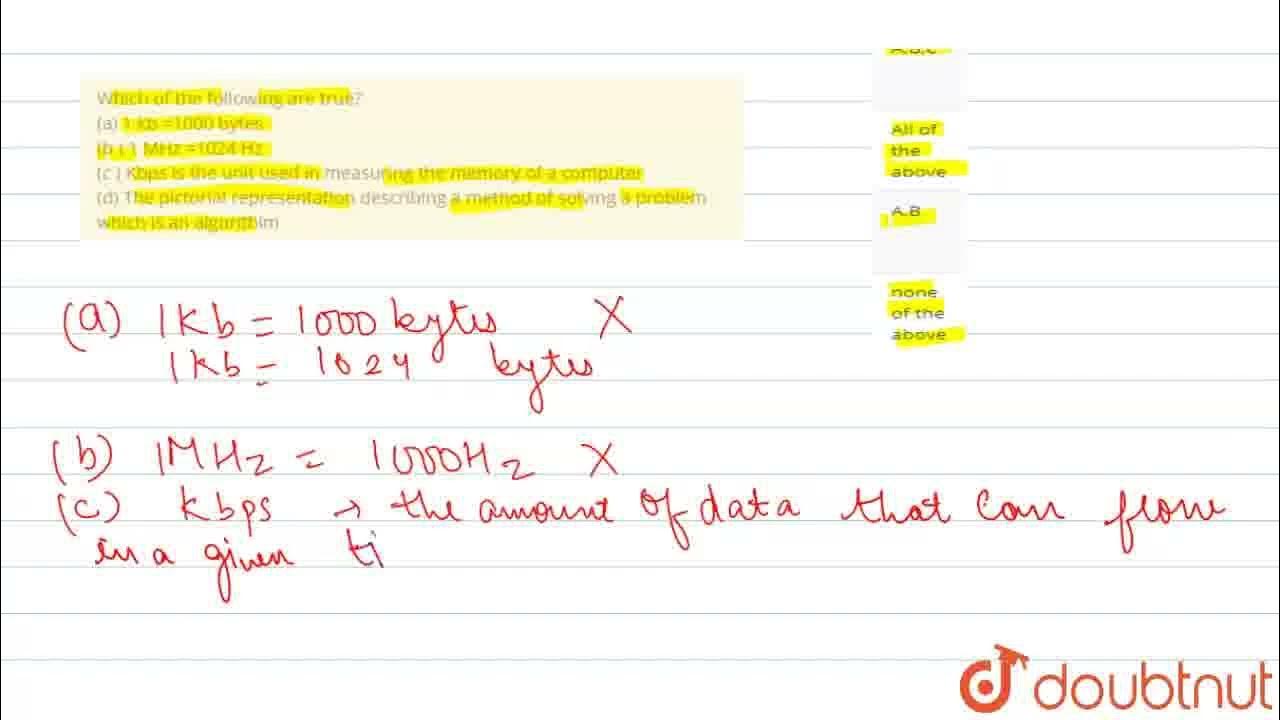 Which of the following are true?
(a) 1 kb =1000 bytes
(b ( ) MHz =1024 Hz
(c ) Kbps is the unit used in measuring the memory of a computer
(d) The pictorial representation describing a method of solving a problem
which is an algorithim
A,B,C
All of
the
above
A,B
none
of the
above
(a) 1Kb = 1000 bytes X
1Kb = 1024 bytes
(b) 1MHz = 1000Hz X
(c) kbps → the amount of data that can flow
in a given ti
doubtnut